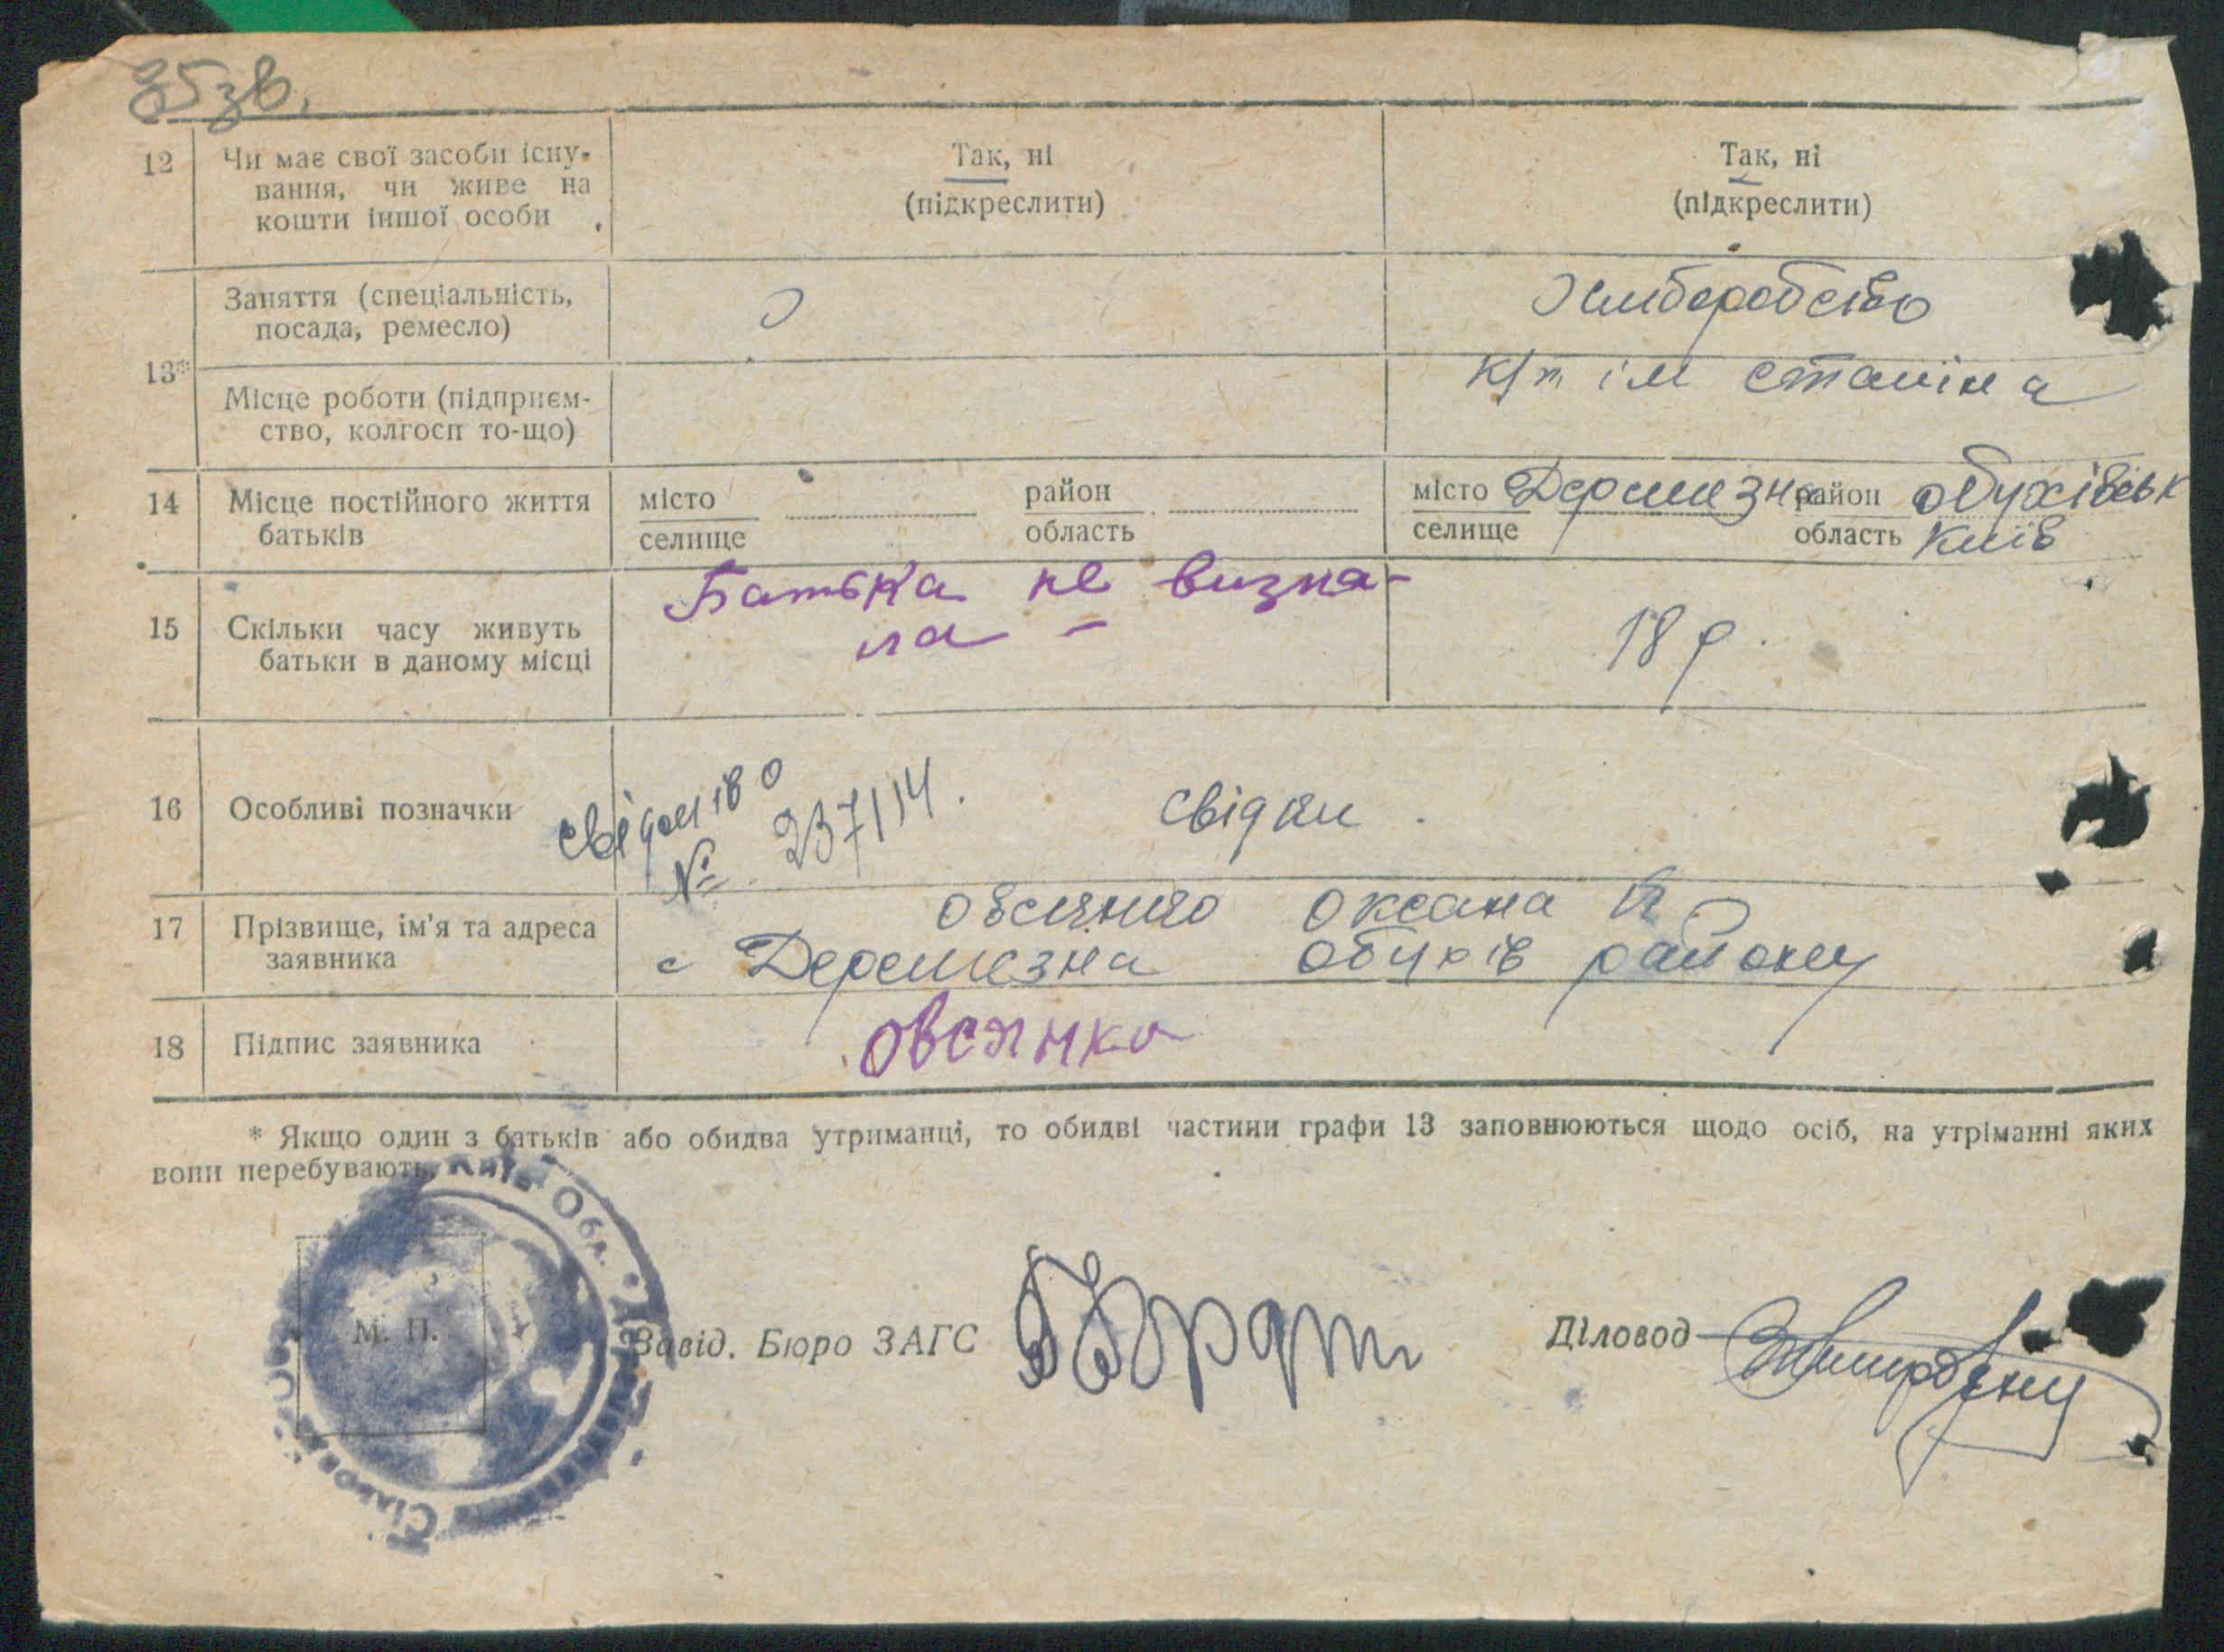 35зв.
12 Чи має свої засоби існу-
вання, чи живе на
кошти іншої особи
Так, ні
(підкреслити)
Так, ні
(підкреслити)
13*
Заняття (спеціальність,
посада, ремесло)
Хлиборобство
Місце роботи (підприєм-
ство, колгосп то-що)
к/г ім сталіна
14 Місце постійного життя
батьків
місто
селище
район
область
місто Деремезна район обухівськ
селище область Київ
15 Скільки часу живуть
батьки в даному місці
Батька не визна-
ла -
18 р.
16 Особливі позначки
№ 237114.
свідки.
17 Прізвище, ім'я та адреса
заявника
Оксана
с Деремезна обухів району
18 Підпис заявника
Овсянко
* Якщо один з батьків або обидва утриманці, то обидві частини графи 13 заповнюються щодо осіб, на утріманні яких
вони перебувають.
Київ Обл.
М. П.
Завід. Бюро ЗАГС
Діловод